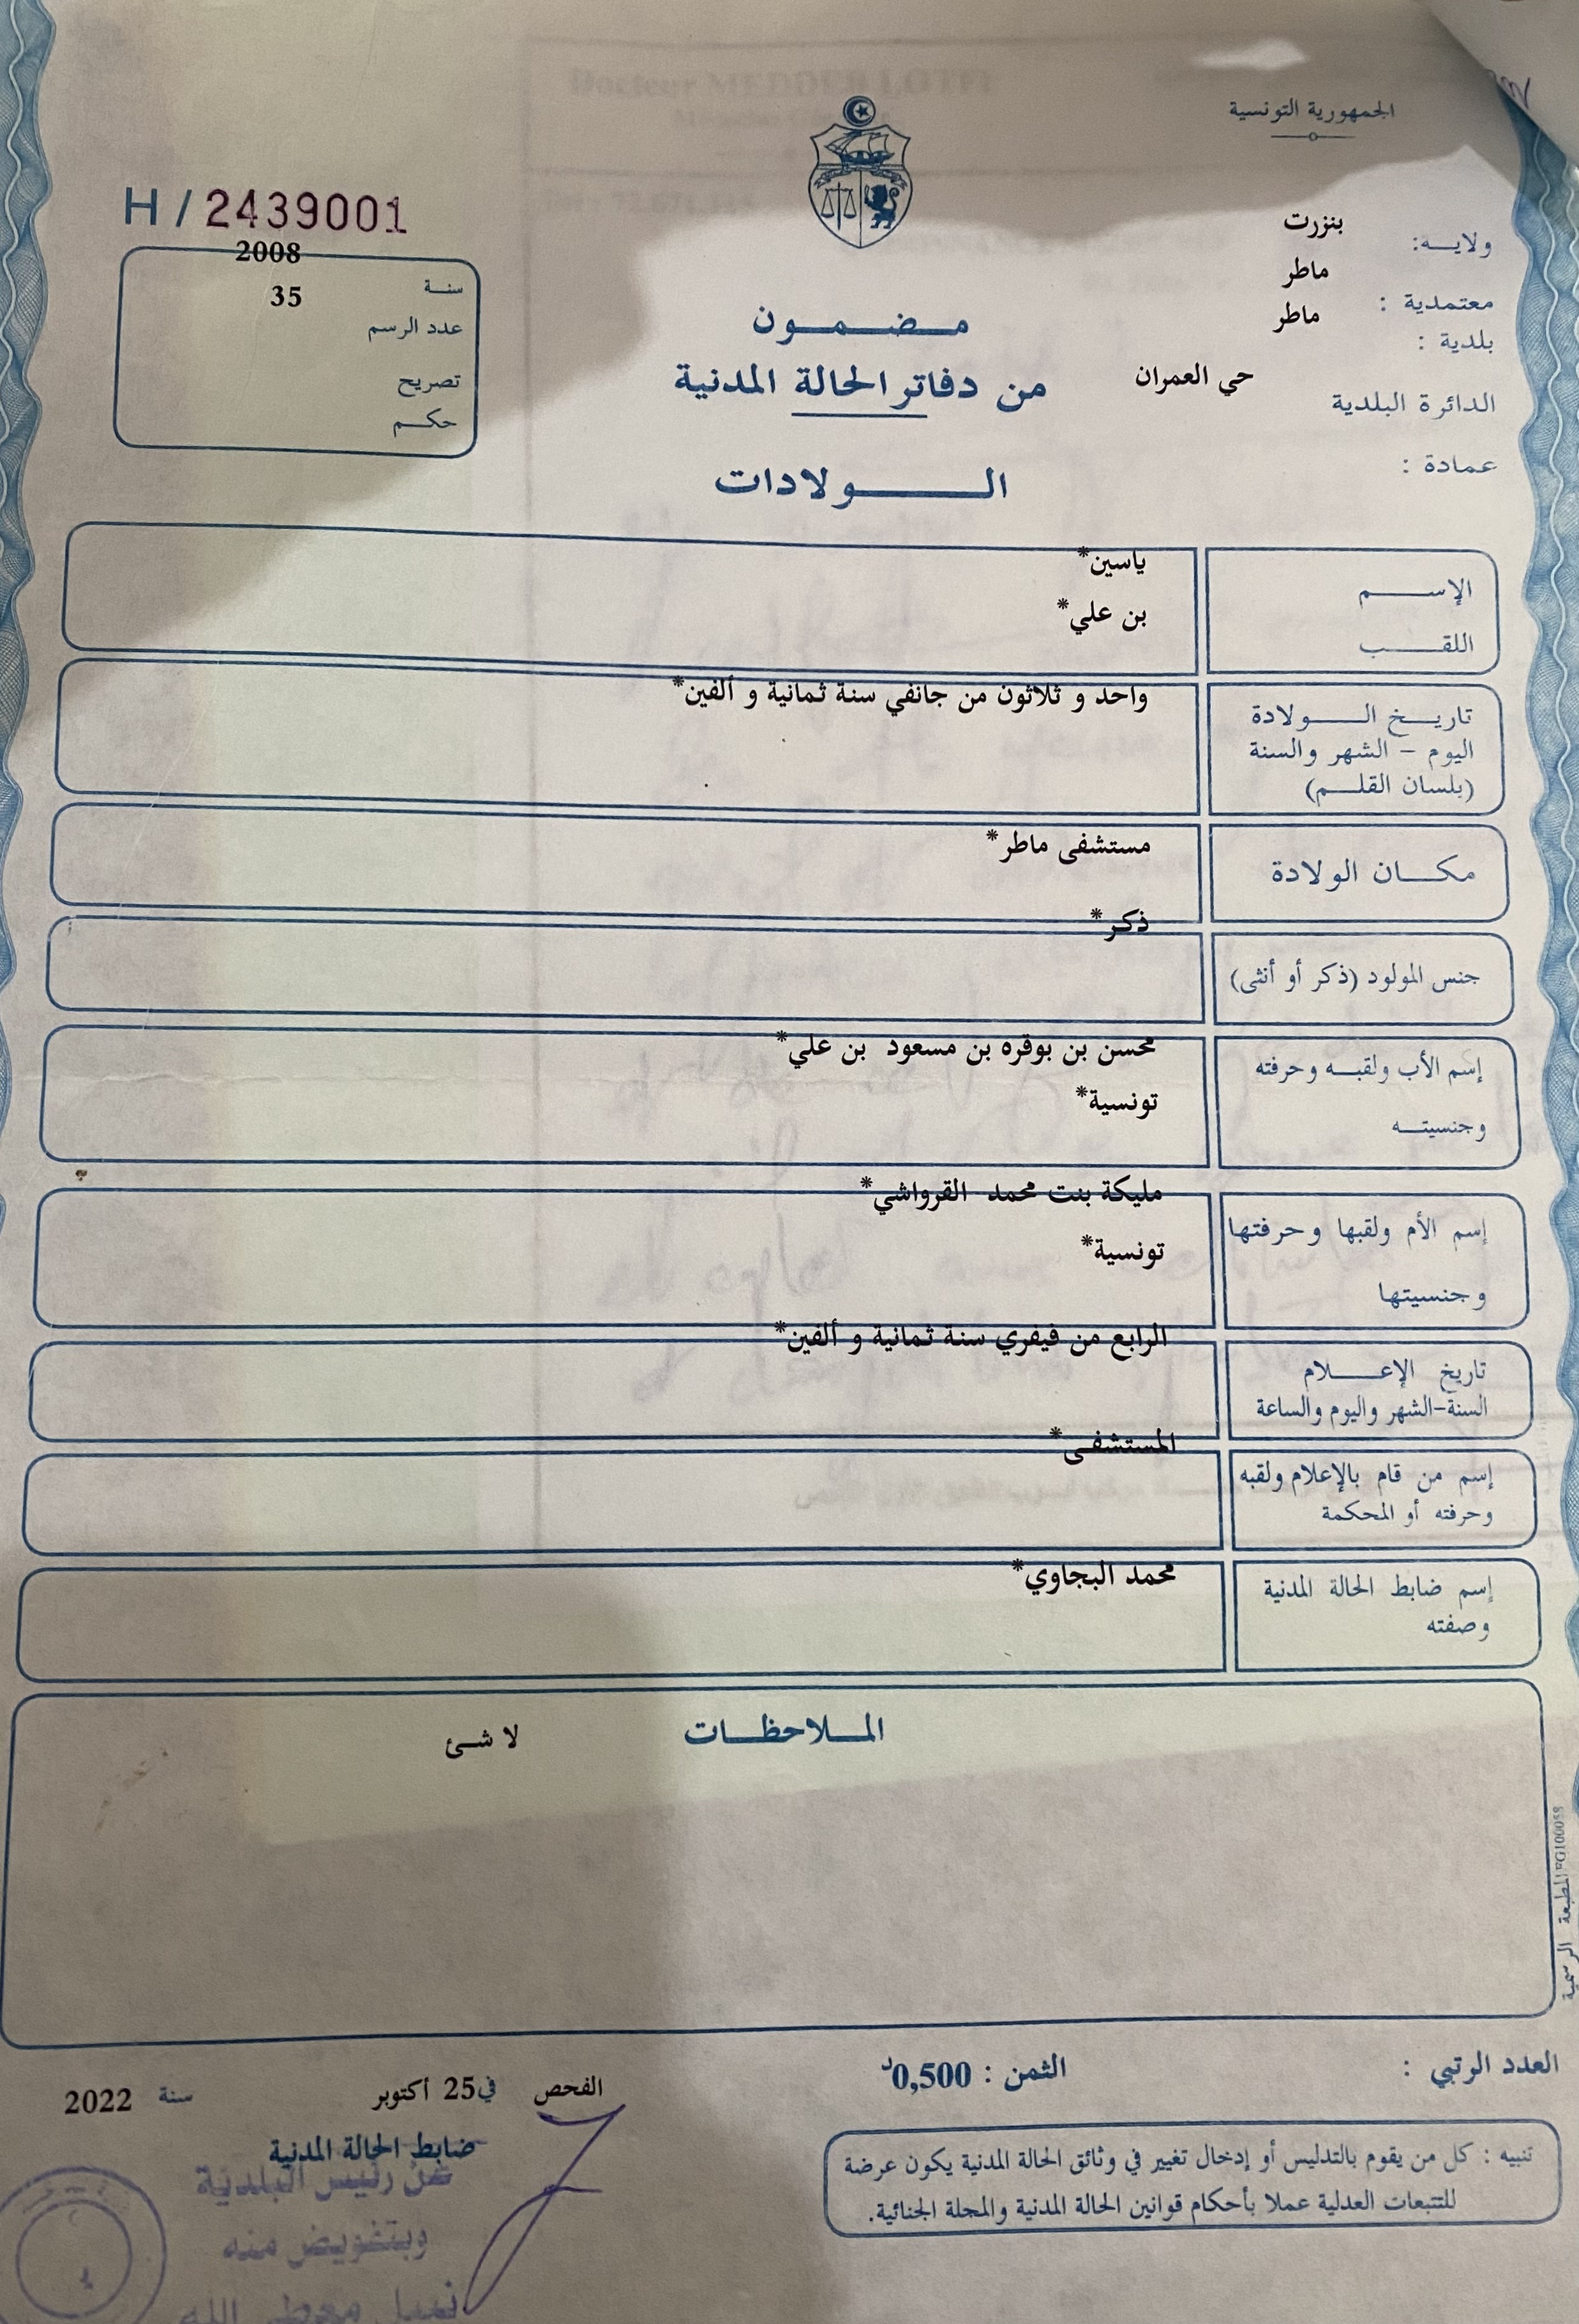 الجمهورية التونسية
ولايــه: بنزرت
معتمدية : ماطر
بلدية : ماطر
الدائرة البلدية حي العمران
عمادة :
H / 2439001
سنة 2008
عدد الرسم 35
تصريح
حكم
مضمون
من دفاتر الحالة المدنية
الولادات
الإسم ياسين*
اللقب بن علي*
تاريخ الولادة واحد و ثلاثون من جانفي سنة ثمانية و ألفين*
اليوم – الشهر والسنة
(بلسان القلم)
مكان الولادة مستشفى ماطر*
جنس المولود (ذكر أو أنثى) ذكر*
إسم الأب ولقبه وحرفته محسن بن بوقره بن مسعود بن علي*
وجنسيته تونسية*
إسم الأم ولقبها وحرفتها مليكة بنت محمد القرواشي*
وجنسيتها تونسية*
تاريخ الإعلام الرابع من فيفري سنة ثمانية و ألفين*
السنة-الشهر واليوم والساعة
إسم من قام بالإعلام ولقبه المستشفى*
وحرفته أو المحكمة
إسم ضابط الحالة المدنية محمد البجاوي*
وصفته
الملاحظات لا شئ
المطبعة الرسمية
العدد الرتبي :
الثمن : 0,500د
الفحص في 25 أكتوبر سنة 2022
ضابط الحالة المدنية
عن رئيس البلدية
وبتفويض منه
تنبيه : كل من يقوم بالتدليس أو إدخال تغيير في وثائق الحالة المدنية يكون عرضة
للتتبعات العدلية عملا بأحكام قوانين الحالة المدنية والمجلة الجنائية.